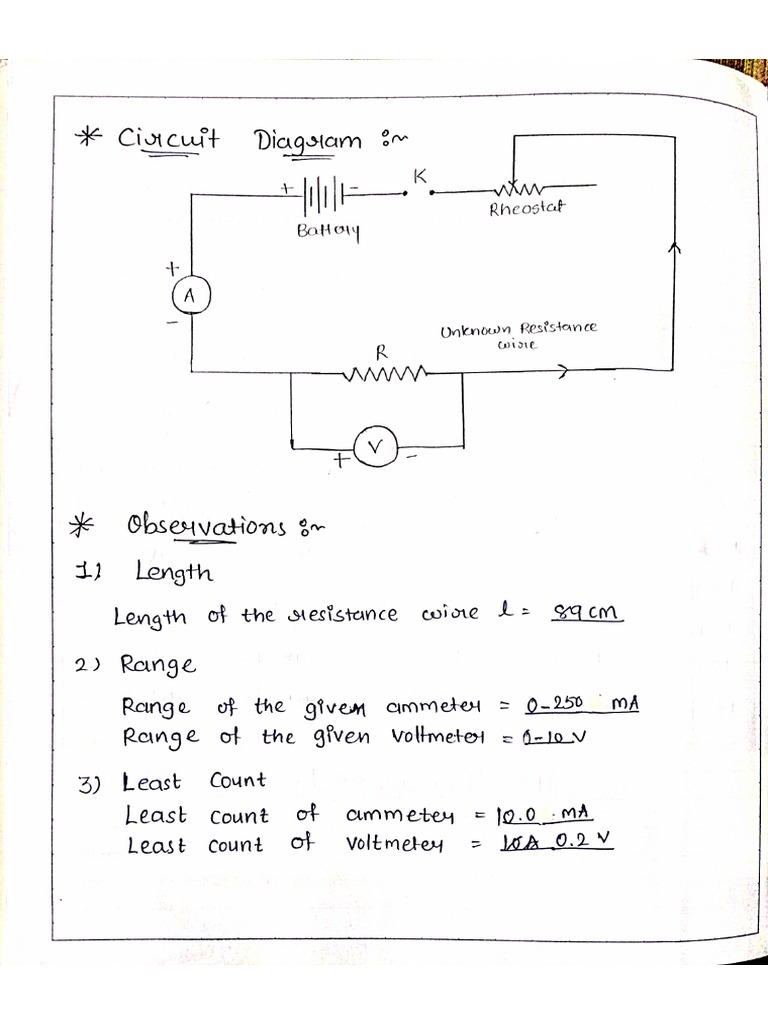 * Circuit Diagram :~
K
+ -
Battery
Rheostat
+
A
-
Unknown Resistance
wire
R
V
+ -
* Observations :~
1) Length
Length of the resistance wire l = 89 cm
2) Range
Range of the given ammeter = 0-250 mA
Range of the given voltmeter = 0-10 V
3) Least Count
Least count of ammeter = 10.0 mA
Least count of voltmeter = 0.2 V